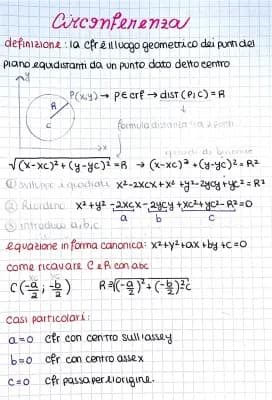 Circonferenza
definizione: la cfr è il luogo geometrico dei punti del
piano equidistanti da un punto dato detto centro
y
P(x,y) → P∈crf → dist (P;C) = R
R
C
x
formula distanza tra 2 punti
quadrati di binomio
√(x-xc)²+(y-yc)² = R → (x-xc)²+(y-yc)² = R²
① sviluppo i quadrati x²-2xcx+xc²+y²-2ycy+yc²=R²
② Riordino x²+y²-2xcx-2ycy+xc²+yc²-R²=0
③ introduco a,b,c a b c
equazione in forma canonica: x²+y²+ax+by+c=0
come ricavare C e R con abc
C(-a/2; -b/2) R=√(-a/2)²+(-b/2)²-c
casi particolari:
a=0 cfr con centro sull'asse y
b=0 cfr con centro asse x
c=0 cfr passa per l'origine.